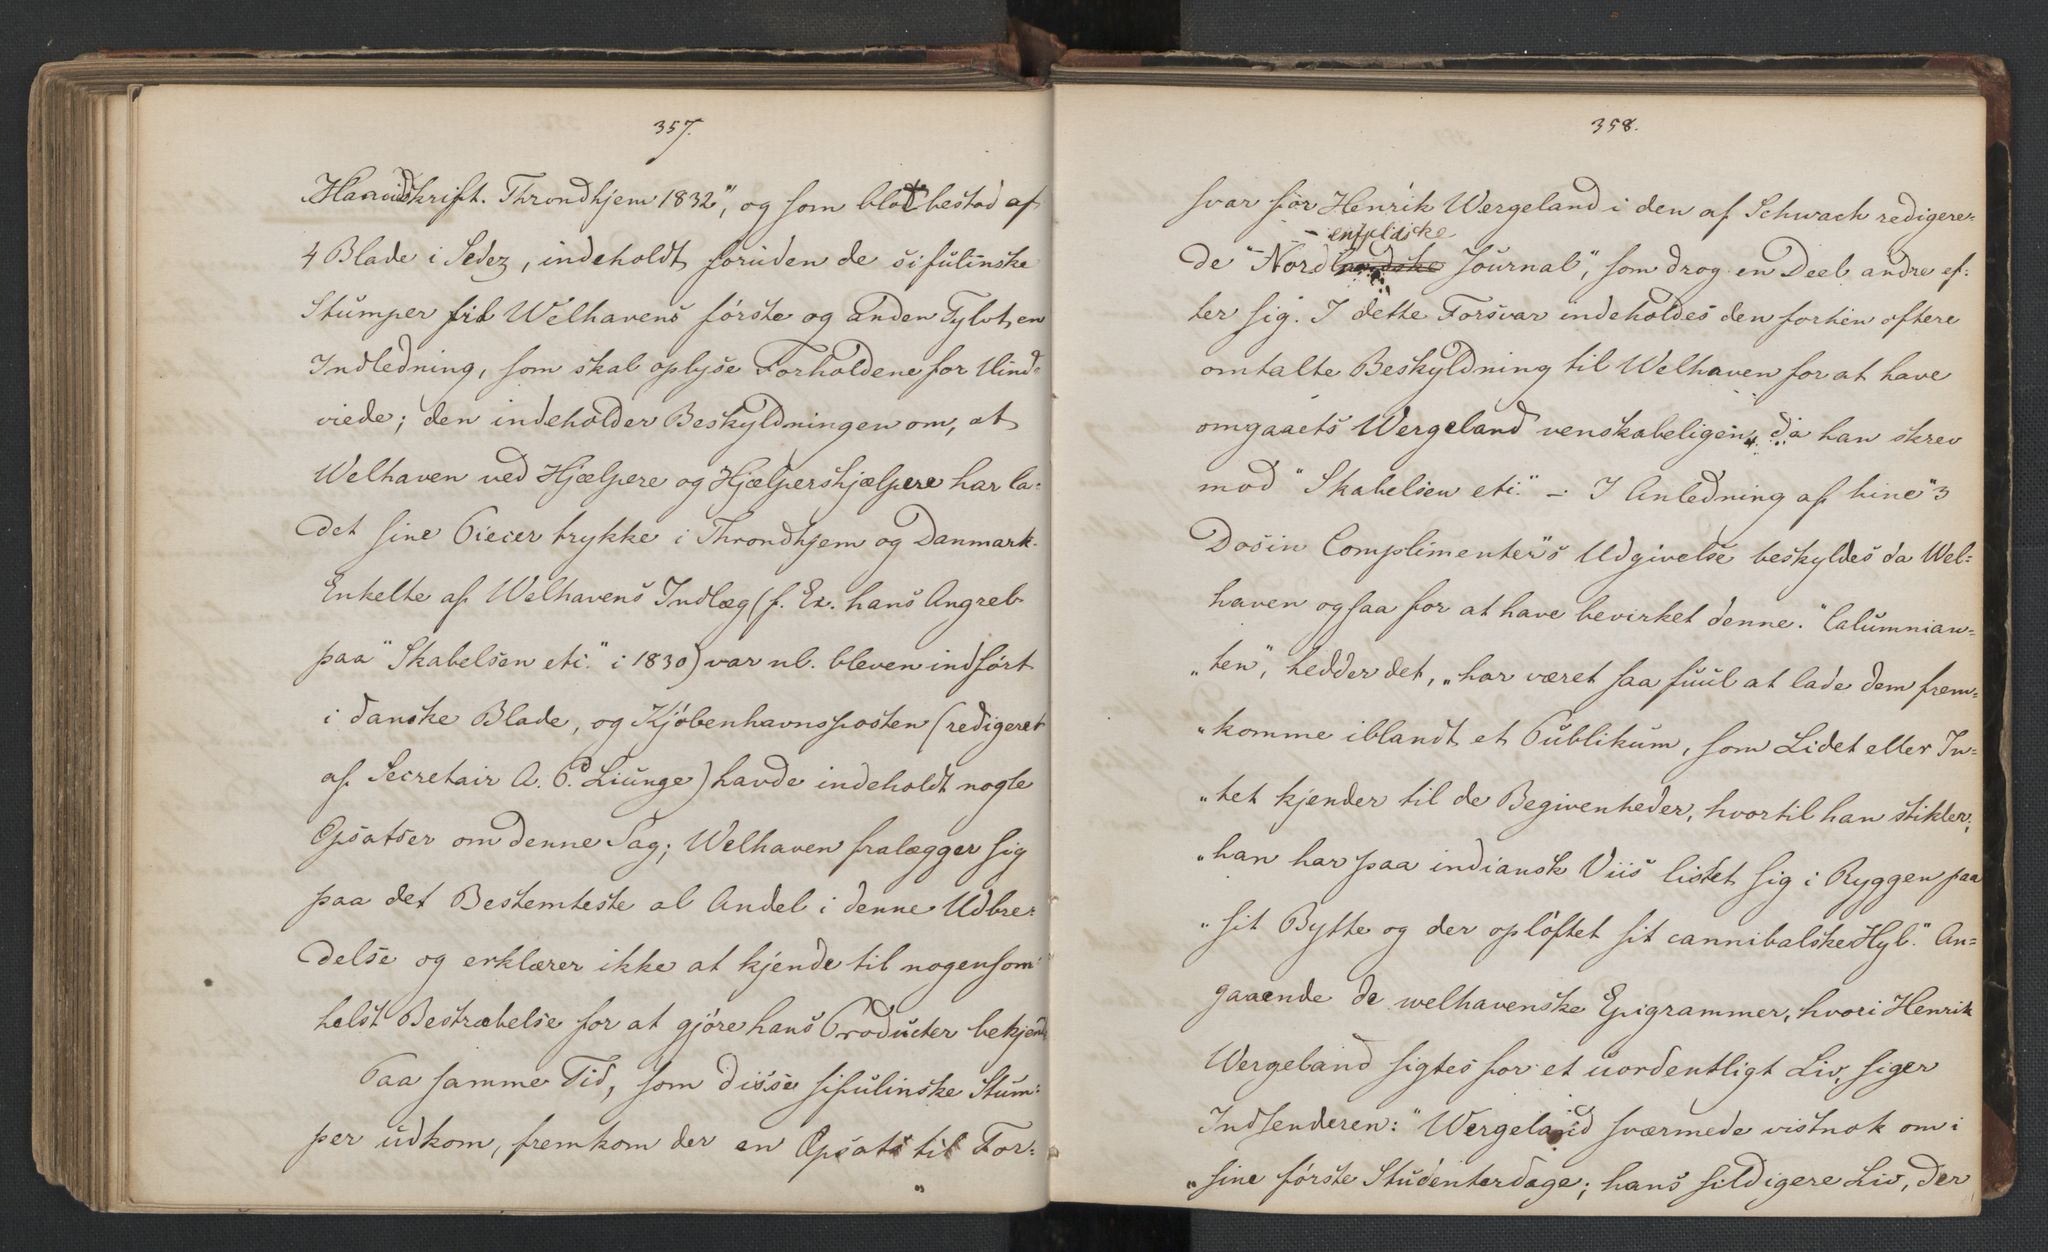 357.
Haandskrift. Throndhjem 1832", og som blot bestod af
4 Blade i Sedez, indeholdt foruden de sifulinske
Stumper til Welhavens første og anden Tylvt en
Indledning, som skal oplyse Forholdene for Uind-
viede; den indeholder Beskyldningen om, at
Welhaven ved Hjælpere og Hjælpershjælpere har la-
det sine Piecer trykke i Throndhjem og Danmark.
Enkelte af Welhavens Indlæg (f. Ex. hans Angreb
paa "Skabelsen etc." i 1830) var nl. bleven indført
i danske Blade, og Kjöbenhavnsposten (redigeret
af Secretair A. P. Liunge) havde indeholdt nogle
Opsatser om denne Sag; Welhaven fralægger sig
paa det Bestemteste al Andel i denne Udbre-
delse og erklærer ikke at kjende til nogensom-
helst Bestræbelse for at gjøre hans Producter bekjendte
Paa samme Tid, som disse sifulinske Stum-
per udkom, fremkom der en Opsats til For-
358.
svar for Henrik Wergeland i den af Schwach redigere-
- enfjeldske
de "Nordlandske Journal", som drog en Deel andre ef-
ter sig. I dette Forsvar indeholdes den forhen oftere
omtalte Beskyldning til Welhaven for at have
omgaaets Wergeland venskabeligen, da han skrev
mod "Skabelsen etc." – I Anledning af hine "3
Dosin Complimenter"s Udgivelse beskyldes da Wel-
haven ogsaa for at have bevirket denne. "Calumnian-
"ten", hedder det, "har været saa fuul at lade dem frem-
"komme iblandt et Publikum, som Lidet eller In-
"tet kjender til de Begivenheder, hvortil han stikler;
"han har paa indiansk Viis listet sig i Ryggen paa
"sit Bytte og der opløftet sit cannibalske Hyl." An-
gaaende de welhavenske Epigrammer, hvori Henrik
Wergeland sigtes for et uordentligt Liv, siger
Indsenderen: "Wergeland sværmede vistnok om i
"sine første Studenterdage; hans sildigere Liv, der